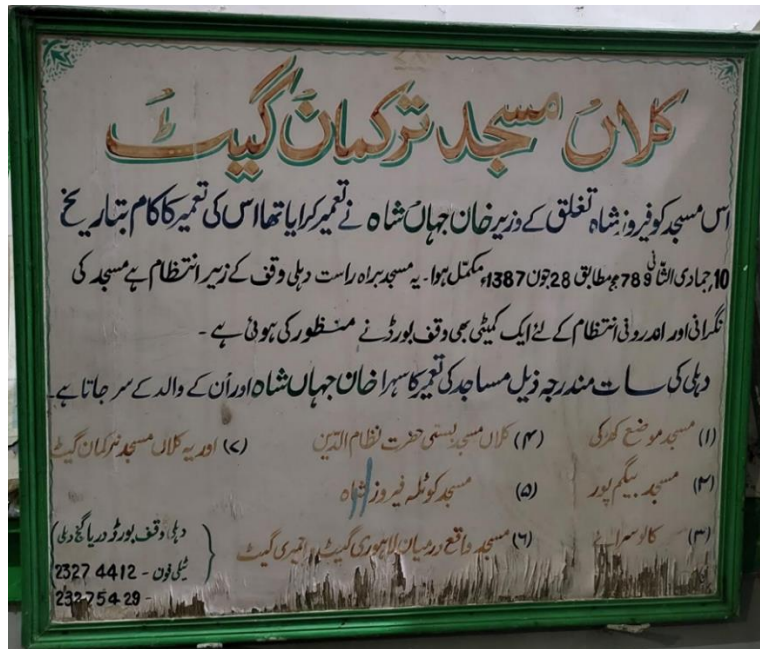 ۷۸۶
کلاں مسجد ترکمان گیٹ
اس مسجد کو فیروز شاہ تغلق کے وزیر خان جہاں شاہ نے تعمیر کرایا تھا اس کی تعمیر کا کام بتاریخ
10, جمادی الثانی 789ھ مطابق 28 جون 1387ء مکمل ہوا۔ یہ مسجد براہ راست دہلی وقف کے زیر انتظام ہے مسجد کی
نگرانی اور اندرونی انتظام کے لئے ایک کمیٹی بھی وقف بورڈ نے منظور کی ہوئی ہے۔
دہلی کی سات مندرجہ ذیل مساجد کی تعمیر کا سہرا خان جہاں شاہ اور اُن کے والد کے سر جاتا ہے۔
(۱) مسجد موضع کھڑکی (۴) کلاں مسجد بستی حضرت نظام الدین (۷) اور یہ کلاں مسجد ترکمان گیٹ
(۲) مسجد بیگم پور (۵) مسجد کوٹلہ فیروز شاہ
(۳) کالو سرائے (۶) مسجد واقع درمیان لاہوری گیٹ و اجمیری گیٹ
دہلی وقف بورڈ دریا گنج دہلی
ٹیلی فون - 23274412
23275429 -